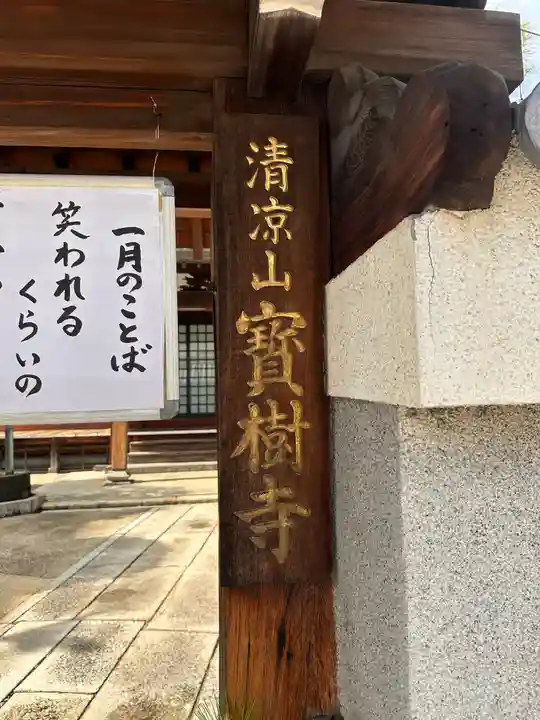 清凉山 寳樹寺
一月のことば
笑われる
くらいの